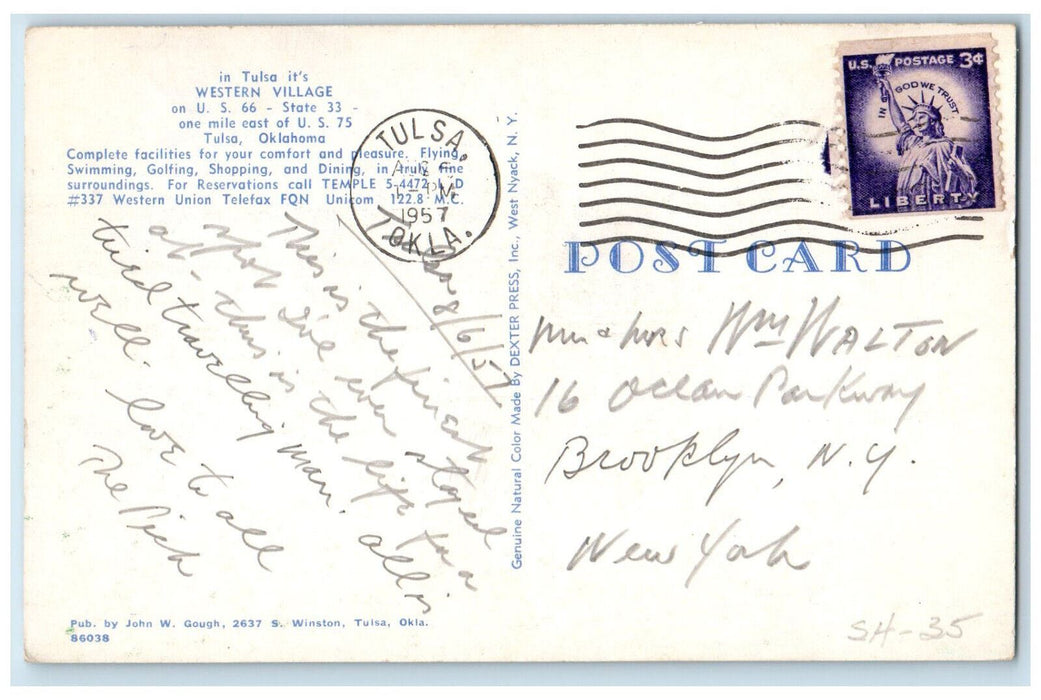 in Tulsa it's
WESTERN VILLAGE
on U. S. 66 - State 33 -
one mile east of U. S. 75
Tulsa, Oklahoma
Complete facilities for your comfort and pleasure. Flying,
Swimming, Golfing, Shopping, and Dining, in truly fine
surroundings. For Reservations call TEMPLE 5-4472 L D
#337 Western Union Telefax FQN Unicom 122.8 M.C.
TULSA,
PM
1957
OKLA.
U.S. POSTAGE 3¢
IN GOD WE TRUST
LIBERTY
POST CARD
8/6/57
This is the finest
spot I've ever stayed
at - this is the life for a
tired travelling man. all is
well. love to all
The Pich
Genuine Natural Color Made By DEXTER PRESS, Inc., West Nyack, N. Y.
Mr & Mrs Wm WALTON
16 Ocean Parkway
Brooklyn, N.Y.
New York
Pub. by John W. Gough, 2637 S. Winston, Tulsa, Okla.
86038
SH-35